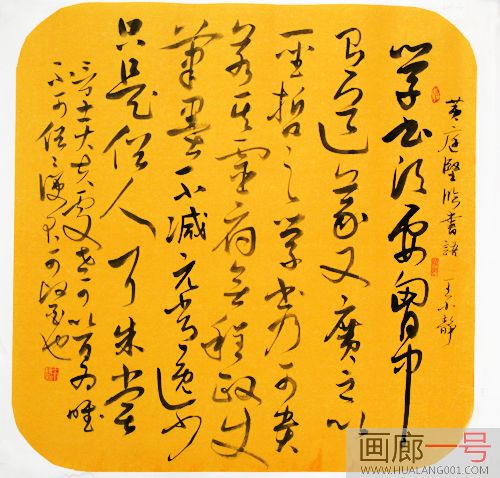 学书须要胸中
有道义又廣之以
圣哲之学书乃可贵
若其灵府无程政使
筆墨不減元常逸少
只是俗人耳余嘗
言士大夫处世可以百为唯
不可俗俗便不可医也
黄庭堅论書語 王小静
画廊一号
WWW.HUALANG001.COM